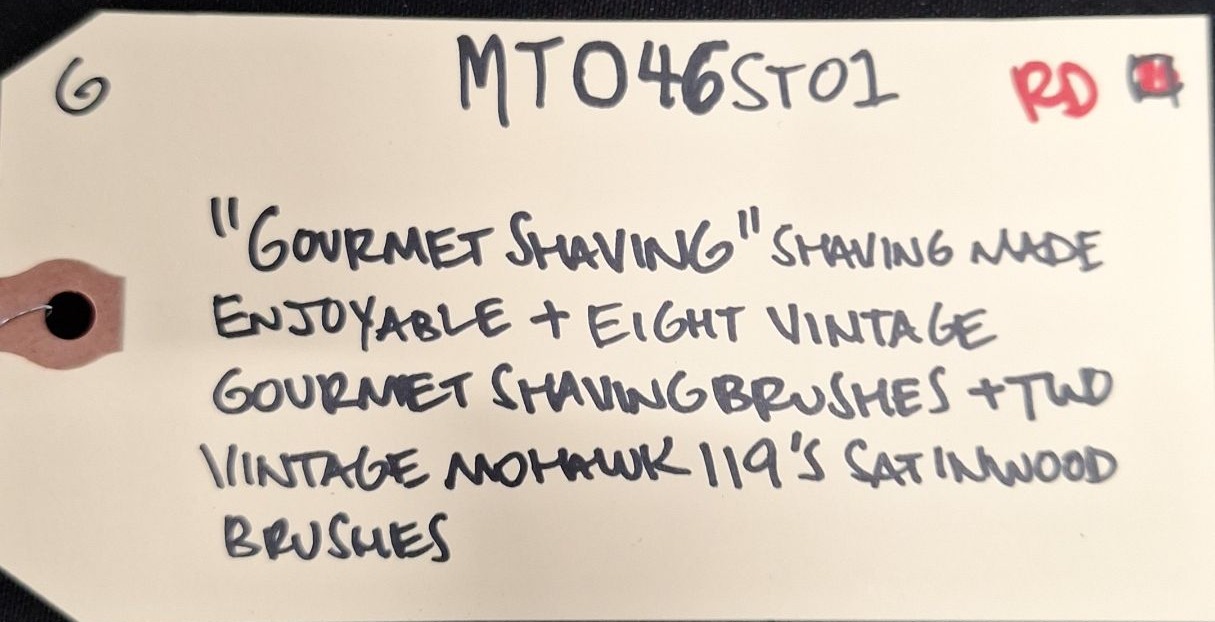 G MT046ST01 RD
"GOURMET SHAVING" SHAVING MADE
ENJOYABLE + EIGHT VINTAGE
GOURMET SHAVING BRUSHES + TWO
VINTAGE MOHAWK 119'S SATINWOOD
BRUSHES